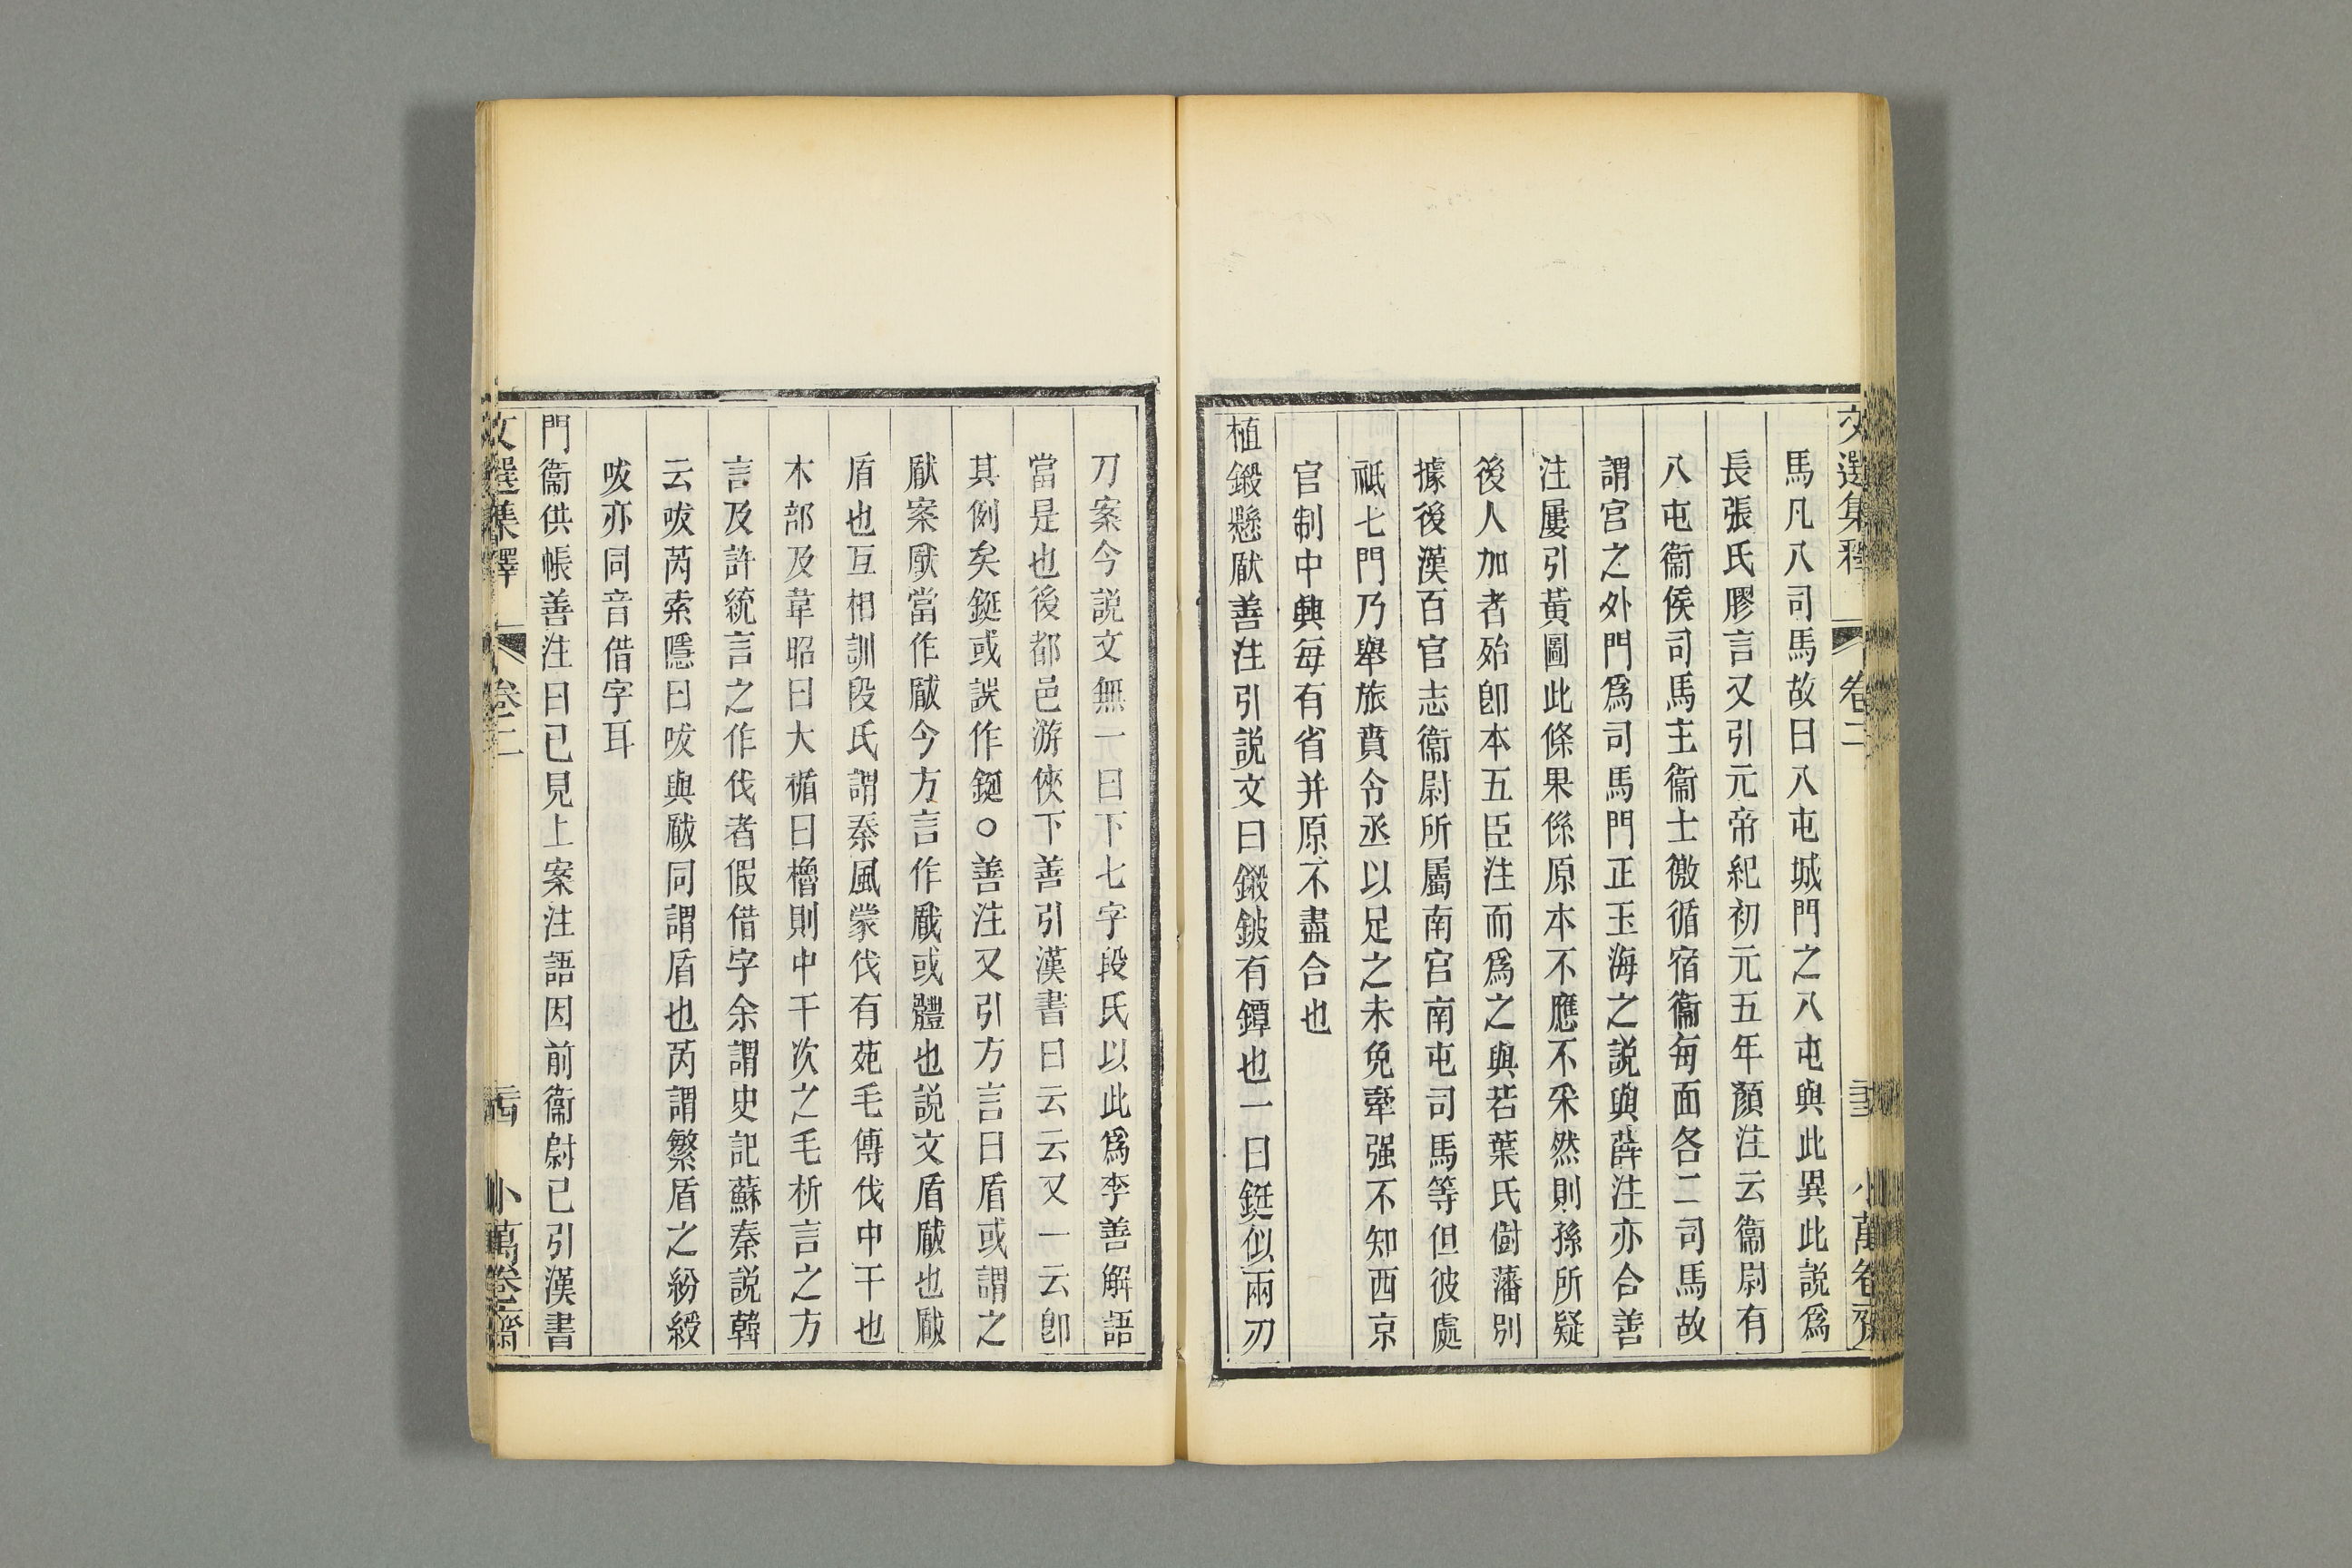 文選集釋 卷二 小萬卷齋
馬凡八司馬故曰八屯城門之八屯與此異此說爲
長張氏膠言又引元帝紀初元五年顏注云衞尉有
八屯衞侯司馬主衞士徼循宿衞每面各二司馬故
謂宫之外門爲司馬門正玉海之說與薛注亦合善
注屢引黃圖此條果係原本不應不釆然則孫所疑
後人加者殆卽本五臣注而爲之與若葉氏樹藩別
據後漢百官志衞尉所屬南宫南屯司馬等但彼處
祗七門乃舉旅賁令丞以足之未免牽强不知西京
官制中興每有省并原不盡合也
植鎩懸瞂善注引說文曰鎩鈹有鐔也一曰鋌似兩刃
刀案今說文無一曰下七字段氏以此爲李善解語
當是也後都邑游俠下善引漢書曰云云又一云卽
其例矣鋌或誤作鋋○善注又引方言曰盾或謂之
瞂案瞂當作瞂今方言作瞂或體也說文盾瞂也瞂
盾也互相訓段氏謂秦風蒙伐有苑毛傳伐中干也
木部及韋昭曰大楯曰櫓則中干次之毛析言之方
言及許統言之作伐者假借字余謂史記蘇秦說韓
云㕹芮索隱曰㕹與瞂同謂盾也芮謂繁盾之紛綬
㕹亦同音借字耳
門衞供帳善注曰已見上案注語因前衞尉已引漢書
文選集釋 卷二 西 小萬卷齋